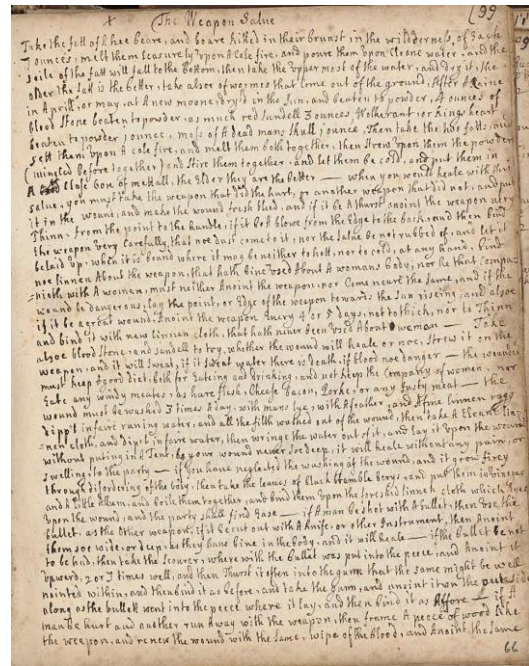 The Weapon Salve
(99
Take the fatt of a hee beare, and boare killed in their brunst in the wildderness, of Each
7 ounces, melt them leasurely upon a Cole fire, and poure them upon Cleane water, and the
soile of the fatt will fall to the bottom, then take the upper most of the water, and dry it, the
older the fatt is the better, take alsoe of wormes that come out of the ground, After A Raine
in Aprill, or may, at A new moone, dry'd in the Sun, and beaten to powder, 4 ounces of
blood stone beaten to powder, as much red sandell 3 ounces, or hings heart
beaten to powder 1 ounce, moss of A dead mans skull 1 ounce, Then take the two fatts, and
sett them upon A cole fire, and melt them both together, then strew upon them the powders
(mingled before together) and stire them together, and let them be cold, and put them in
A close box of mettall, the Elder they are the better — when you would heale with this
salve, you must take the weapon that did the hurt, or another weapon that did not, and put
it in the wound, and make the wound fresh bleed, and if it be A thurst anoint the weapon very
thinn, from the point to the handle, if it be A blowe from the Edge to the back, and then bind
the weapon very Carefully, that noe dust come to it, nor the salve be not rubbed of, and let it
be laid up, when it is bound where it may be neither to hott, nor to cold, at any hand. bind
noe linnen About the weapon, that hath bine used About A womans body, nor he that Compa-
nieth with A woman, must neither Anoint the weapon, nor Come neare the Same, and if the
wound be dangerous, lay the point, or Edge of the weapon towards the Sun riseing, and alsoe
if it be a great wound, Anoint the weapon Every 4 or 5 days, not to thick, nor to Thinn
and bind it with new linnen cloth, that hath never been used About woeman — Take
alsoe blood stone, and sandell to try, whether the wound will heale or noe, strew it on the
weapon, and it will sweat, if it sweat water there is death, if blood noe danger — the wounded
must keep A good diet, both for Eateing and drinking, and not keepe the Company of women, nor
Eate any windy meates, as hare flesh, Cheese, bacon, Porke, or any fusty meat — the
wound must be washed 3 times A day, with mans with A feather, and A fine linnen ragg
dipp't in faire runing water, and all the filth washed out of the wound, then take A Cleane lin-
nen cloth, and dip it in faire water, then wringe the water out of it, and lay it upon the wound
without puting in A Tent, be your wound never soe deep, it will heale without any pain, or
swelling, to the party — if you have neglected the washing of the wound, and it grow firey
through disordering of the body, then take the leaves of black bramble berys, and put them in
and A little Alum, and boile them together, and bind them upon the foresaid linnen cloth which lyes
upon the wound, and the party shall find Ease — if A man be shot with A bullet, then use the
bullet, as the other weapon, if it be cut out with A knife, or other Instrument, then Anoint
them soe wide, or deep, as they have bine in the body, and it will heale — if the bullet be not
to be had, then take the scourer, where with the bullet was put into the peece, and Anoint it
upward, 2 or 3 times well, and then thurst it often into the gunn that the same might be well
nointed within, and then bind it as before, and take the gunn, and anoint it on the out side
along as the bullet went into the peece where it lay, and then bind it as Affore — if A
man be hurt and another run Away with the weapon, then frame A peece of wood like
the weapon, and renew the wound with the same, wipe of the blood, and Anoint the Same
66